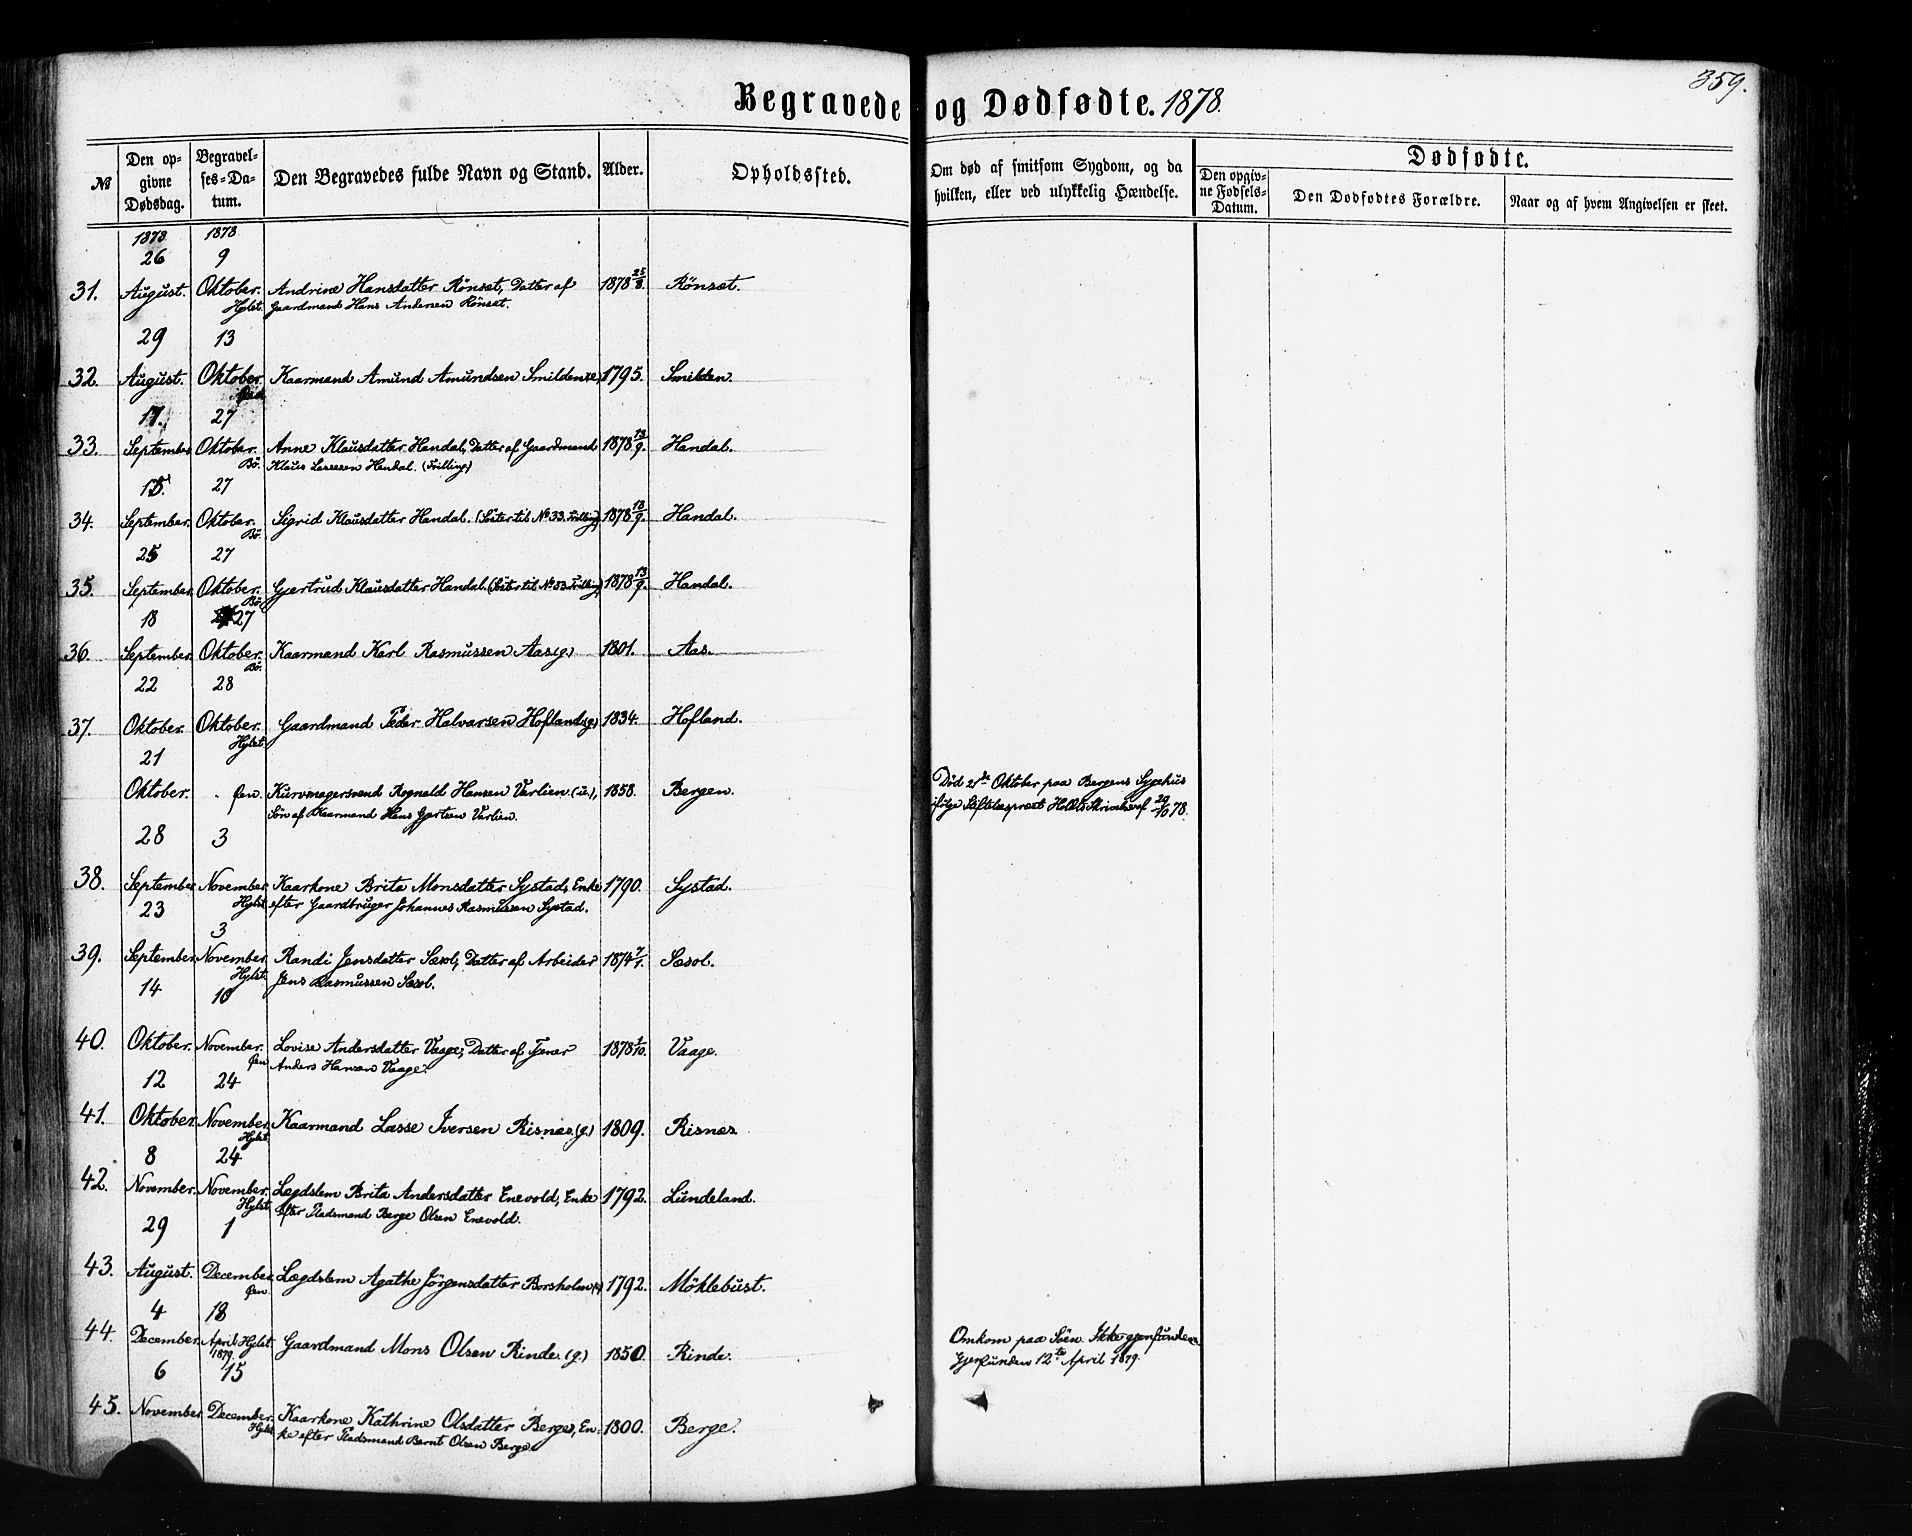 359.
Begravede og Dødfødte. 1878.
№
Den opgivne Dødsdag.
Begravelses-Datum.
Den Begravedes fulde Navn og Stand.
Alder.
Opholdssted.
Om død af smitsom Sygdom, og da hvilken, eller ved ulykkelig Hændelse.
Dødfødte.
Den opgivne Fødsels-Datum.
Den Dødfødtes Forældre.
Naar og af hvem Angivelsen er skeet.
1878 1878
26 9
31. August. Oktober. Andrine Hansdatter Rønset, Datter af 1878 25/8. Rønset.
Hylst. Gaardmand Hans Andersen Rønset.
29 13
32. August. Oktober. Kaarmand Amund Amundsen Smilden 1795. Smilden.
17. 27
33. September. Oktober. Anne Klausdatter Handal, Datter af Gaardmand 1878 13/9. Handal.
Bø. Klaus Lassesen Handal. (Trilling)
27
34. September. Oktober. Sigrid Klausdatter Handal. (Søster til № 33. Trilling) 1878 13/9. Handal.
Bø.
25 27
35. September. Oktober. Gjertrud Klausdatter Handal. (Søster til № 33 Trilling) 1878 13/9. Handal.
Bø.
18 27
36. September. Oktober. Kaarmand Karl Rasmussen Aas (g) 1801. Aas.
Bø.
22 28
37. Oktober. Oktober. Gaardmand Peder Halvarsen Hofland (g) 1834. Hofland.
Hylst.
21
Oktober. Øen. Kurvmagersvend Rognald Hansen Varlien (u.), 1858. Bergen. Død 21de Oktober paa Bergens Sygehus
Søn af Kaarmand Hans Gjertsen Varlien. ifølge Stiftelsesprest Holcks Skrivelse af 29/10 78.
28 3
38. September. November. Kaarkone Brita Monsdatter Systad, Enke 1790. Systad.
Hylst. efter Gaardbruger Johannes Rasmussen Systad.
23 3
39. September. November. Randi Jensdatter Sæsol, Datter af Arbeider 1874 7/1. Sæsol.
Hylst. Jens Rasmussen Sæsol.
14 10
40. Oktober. November. Lovise Andersdatter Vaage, Datter af Tjener 1878 1/10. Vaage.
Øen Anders Hansen Vaage.
12 24
41. Oktober. November. Kaarmand Lasse Iversen Risnæs (g.) 1809. Risnæs.
Hylst
8 24
42. November. November. Lægdslem Brita Andersdatter Enevold, Enke 1792. Lundeland.
Hylst. efter Pladsmand Berge Olsen Enevold.
29 1
43. August. December. Lægdslem Agathe Jørgensdatter Borsholm 1792. Møklebust.
Øen.
4 18
44. December. April Hylst. 1879. Gaardmand Mons Olsen Rinde. (g.) 1850. Rinde. Omkom paa Søen. Ikke gjenfunden
Gjenfunden 12te April 1879.
6 15
45. November. December. Kaarkone Kathrine Olsdatter Berge, En- 1800. Berge.
Hylst. ke efter Pladsmand Bernt Olsen Berge.